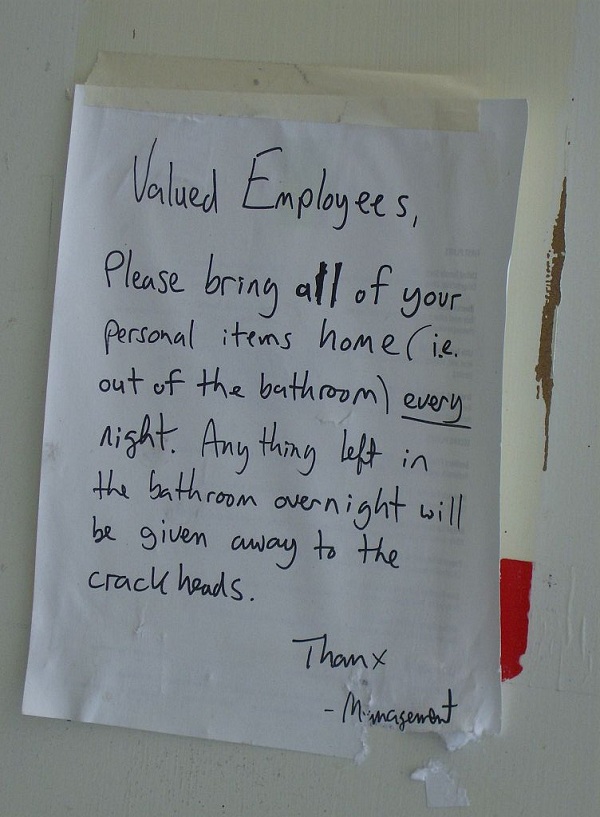 Valued Employees,
Please bring all of your
personal items home (i.e.
out of the bathroom) every
night. Anything left in
the bathroom overnight will
be given away to the
crackheads.
Thanx
- Management